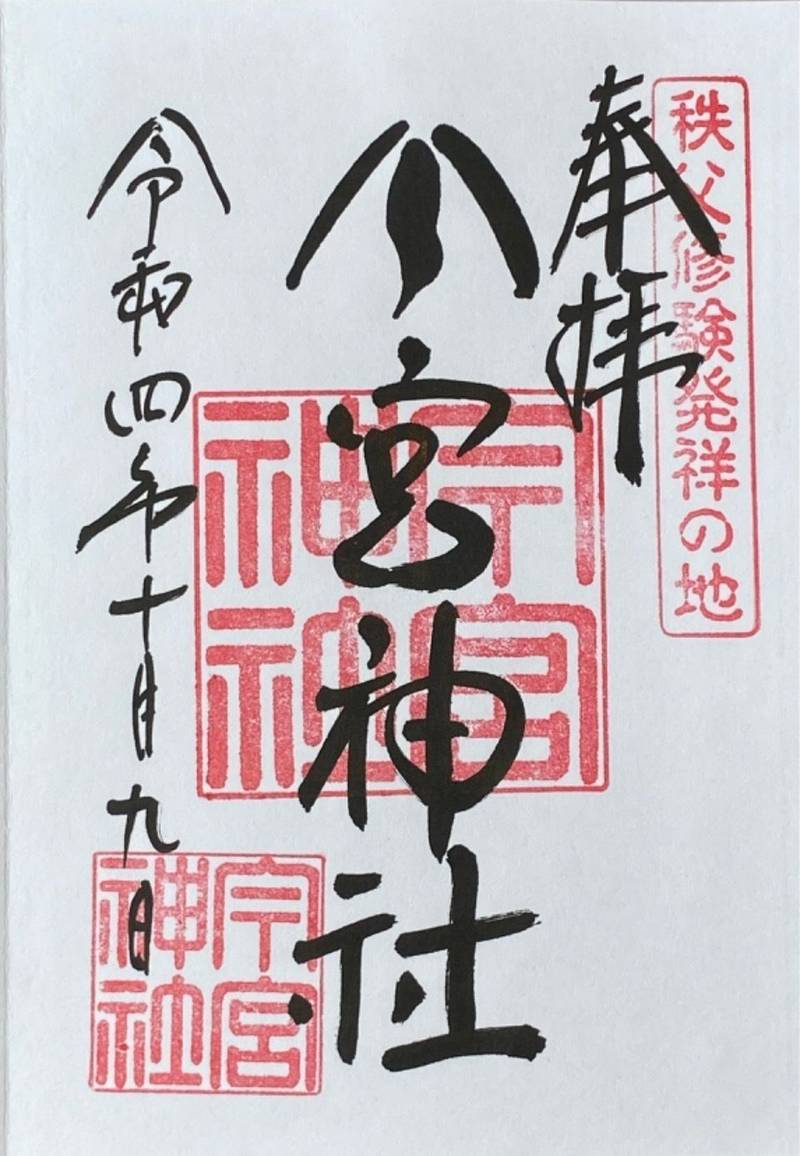 秩父修験発祥の地
奉拝
今宮神社
今宮
神社
令和四年十月九日
今宮
神社